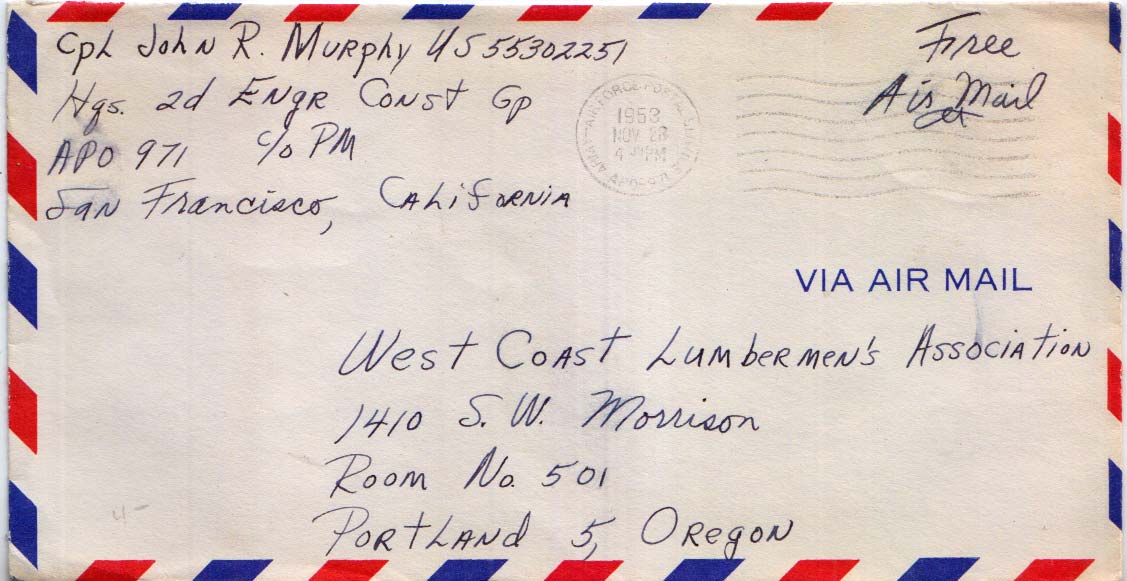 Cpl John R. Murphy US 55302251
Hqs. 2d Engr Const Gp
APO 971 c/o PM
San Francisco, California
Free
Air Mail
1953
NOV 28
PM
VIA AIR MAIL
West Coast Lumbermen's Association
1410 S.W. Morrison
Room No. 501
Portland 5, Oregon